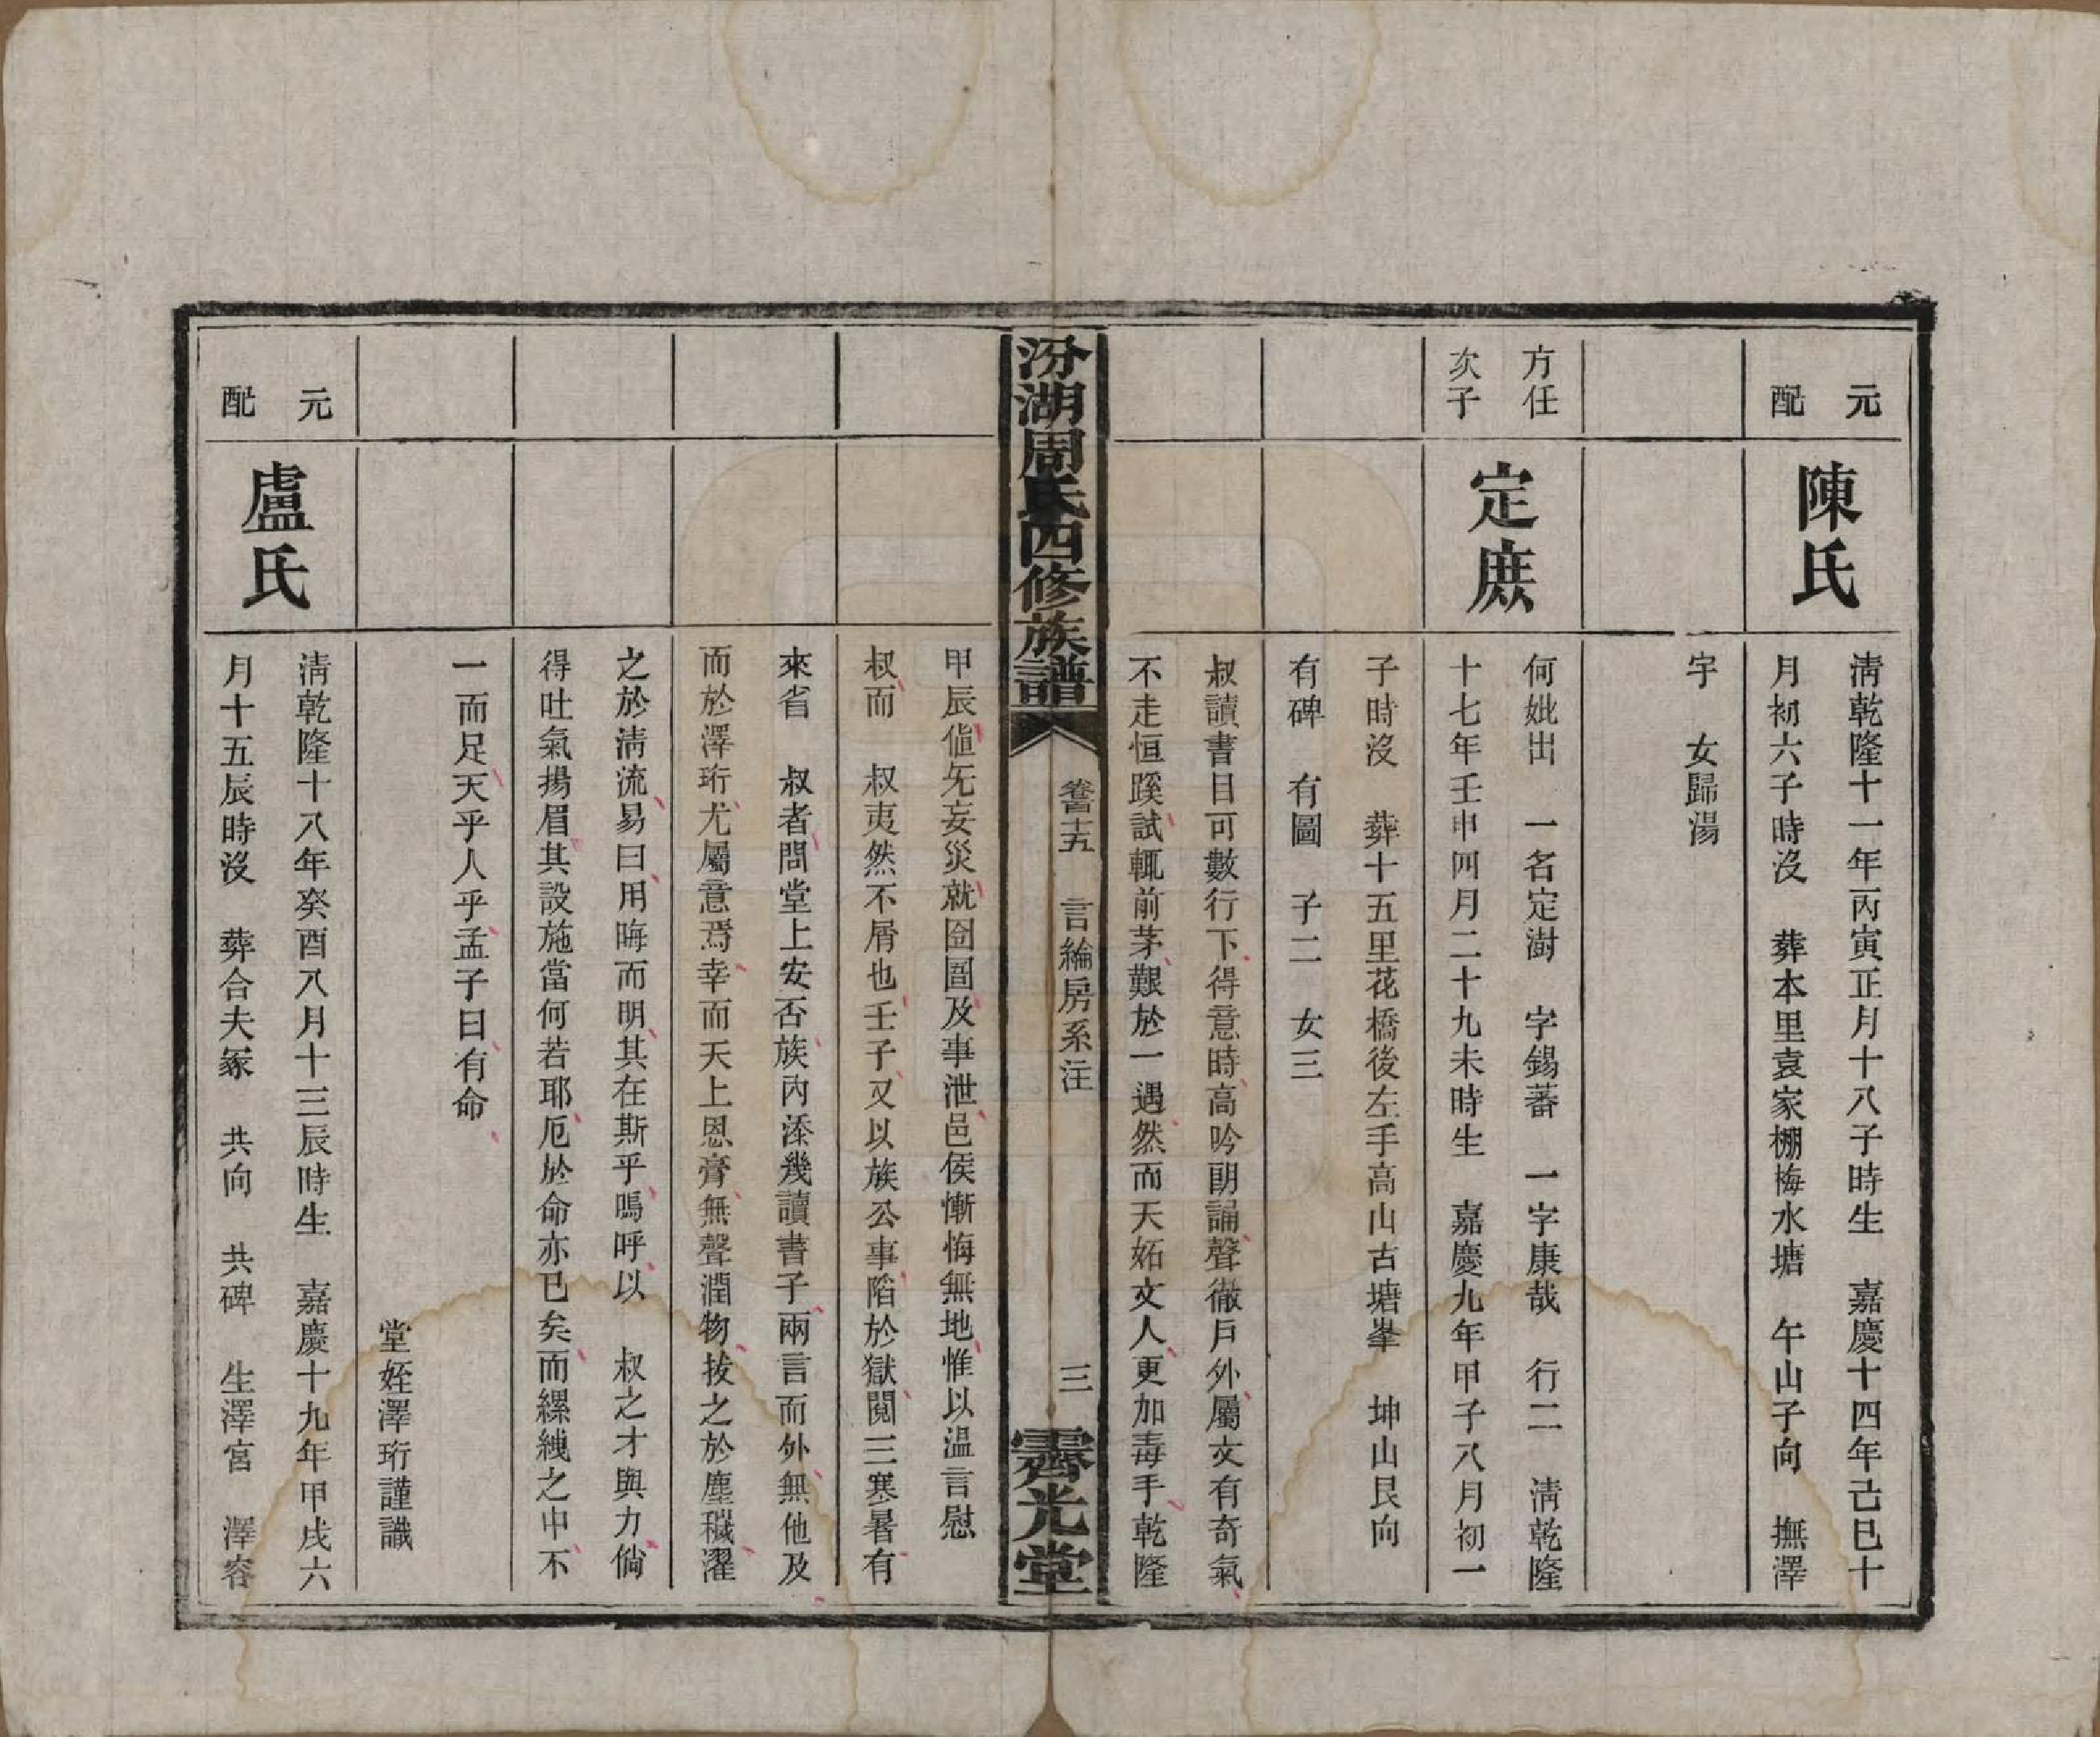 元配
陳氏
淸乾隆十一年丙寅正月十八子時生　嘉慶十四年己巳十
月初六子時沒　葬本里袁家棚梅水塘　午山子向　撫澤
宇　女歸湯
方任
次子
定庶
何妣出　一名定澍　字錫蕃　一字康哉　行二　淸乾隆
十七年壬申四月二十九未時生　嘉慶九年甲子八月初一
子時沒　葬十五里花橋後左手高山古塘峯　坤山艮向
有碑　有圖　子二　女三
叔讀書目可數行下得意時高吟朗誦聲徹戶外屬文有奇氣
不走恒蹊試輒前茅艱於一遇然而天妬文人更加毒手乾隆
汾湖周氏四修族譜
卷首十五　言綸房系注
三
霽光堂
甲辰値旡妄災就囹圄及事泄邑侯慚悔無地惟以温言慰
叔而　叔夷然不屑也壬子又以族公事陷於獄閱三寒暑有
來省　叔者問堂上安否族內添幾讀書子兩言而外無他及
而於澤珩尤屬意焉幸而天上恩膏無聲潤物拔之於塵穢濯
之於淸流易曰用晦而明其在斯乎嗚呼以　叔之才與力倘
得吐氣揚眉其設施當何若耶厄於命亦已矣而縲絏之中不
一而足天乎人乎孟子曰有命
堂姪澤珩謹識
元配
盧氏
淸乾隆十八年癸酉八月十三辰時生　嘉慶十九年甲戌六
月十五辰時沒　葬合夫冢　共向　共碑　生澤宮　澤容